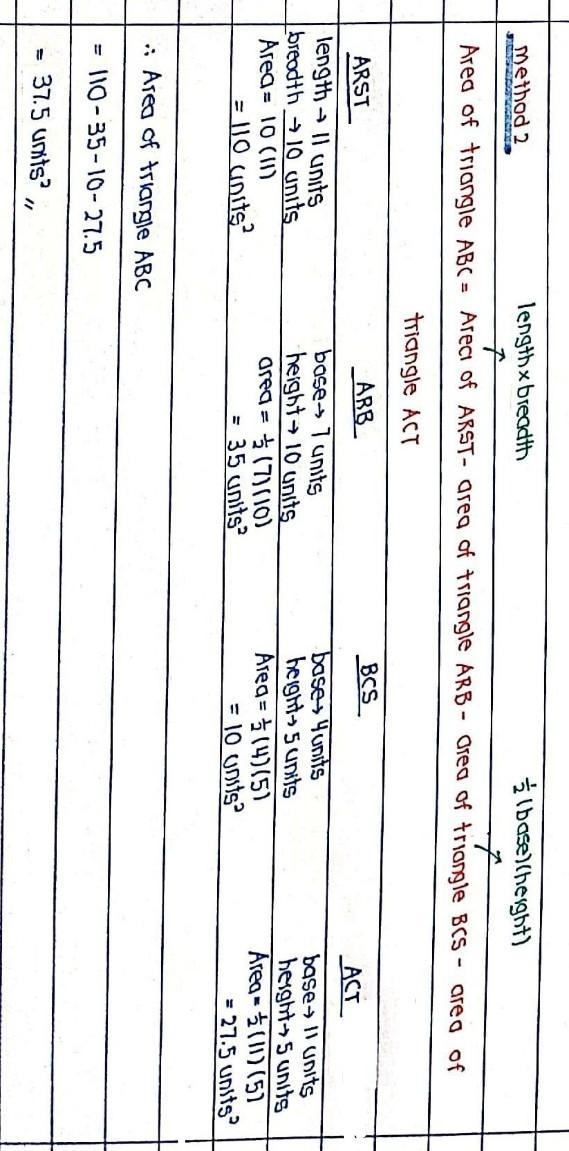 method 2
length x breadth
½ (base)(height)
Area of triangle ABC = Area of ARST - area of triangle ARB - area of triangle BCS - area of
triangle ACT
ARST
length → 11 units
breadth → 10 units
Area = 10 (11)
= 110 units²
ARB
base → 7 units
height → 10 units
area = ½ (7)(10)
= 35 units²
BCS
base → 4 units
height → 5 units
Area = ½ (4)(5)
= 10 units²
ACT
base → 11 units
height → 5 units
Area = ½ (11)(5)
= 27.5 units²
∴ Area of triangle ABC
= 110 - 35 - 10 - 27.5
= 37.5 units² "